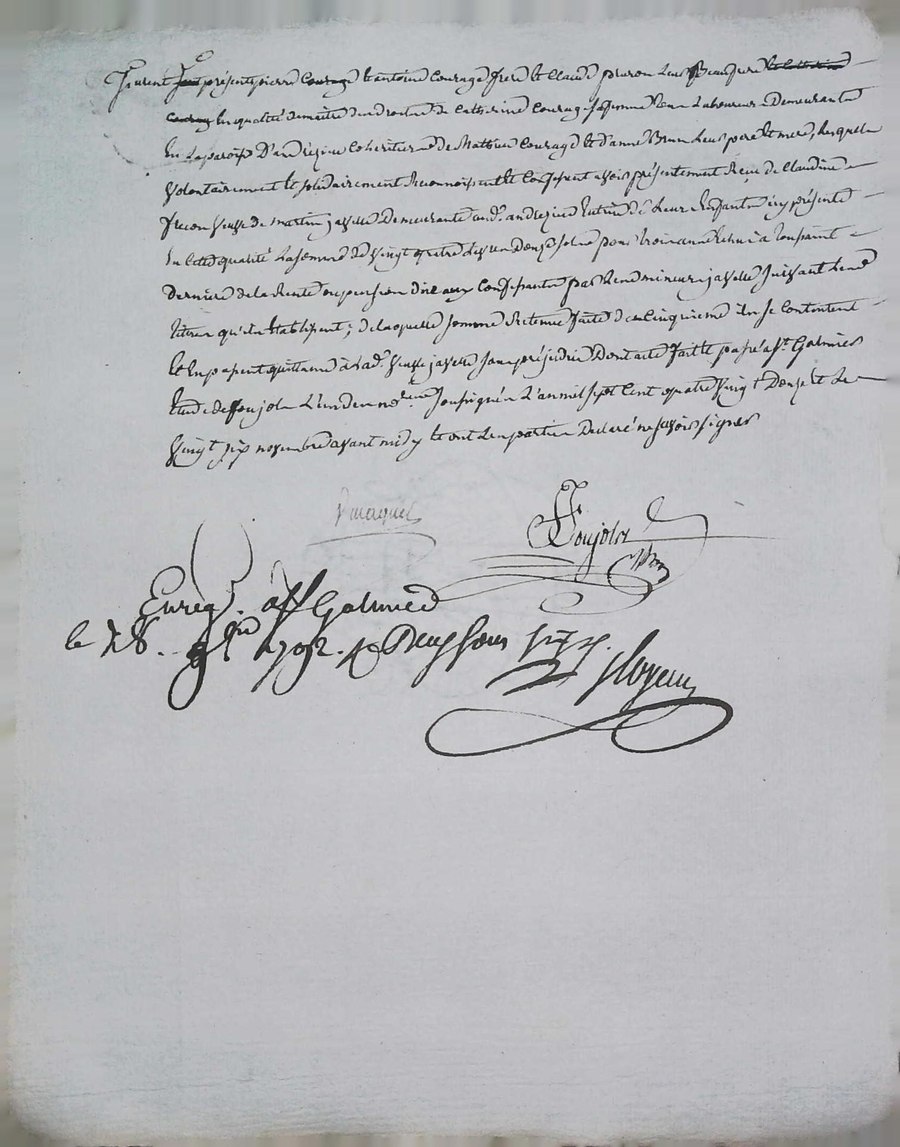 Furent présents pierre courage et antoine courage freres et Claude peuron leur Beaufrere
En qualité de maitre des droits de Catherine Courage sa femme tous Laboureurs Demeurants
En La paroisse D'andrézieu Coheritiers de Mathieu Courage et d'anne Brun Leurs pere et mere, Lesquels
Volontairement et solidairement Reconnoissent et Confessent avoir présentement Reçu de Claudine
veuve de martin javelle Demeurante aud. andrezieu tutrice de Leurs Enfants icy présente
En Cette qualité La somme de vingt quatre Livres Douze sols pour trois années Echues a toussaint
Derniere de la Rente ou pension düe aux Confessants par Lesd. mineurs javelle suivant Les
titres qu'ils Etablissent; de laquelle somme Retenue faite du Cinquieme ils se Contentent
Et En passent quittance à Lad. veuve javelle sans préjudice Dont acte fait et passé a St. Galmier
Etude de Poujols L'un des nores. soussignés L'an mil sept Cent quatre vingt Douze et Le
vingt six novembre avant midy Et ont Les parties Declaré ne savoir signer
Poujols
Enreg. à St Galmier
le 28. 9bre 1792. R Deux sous